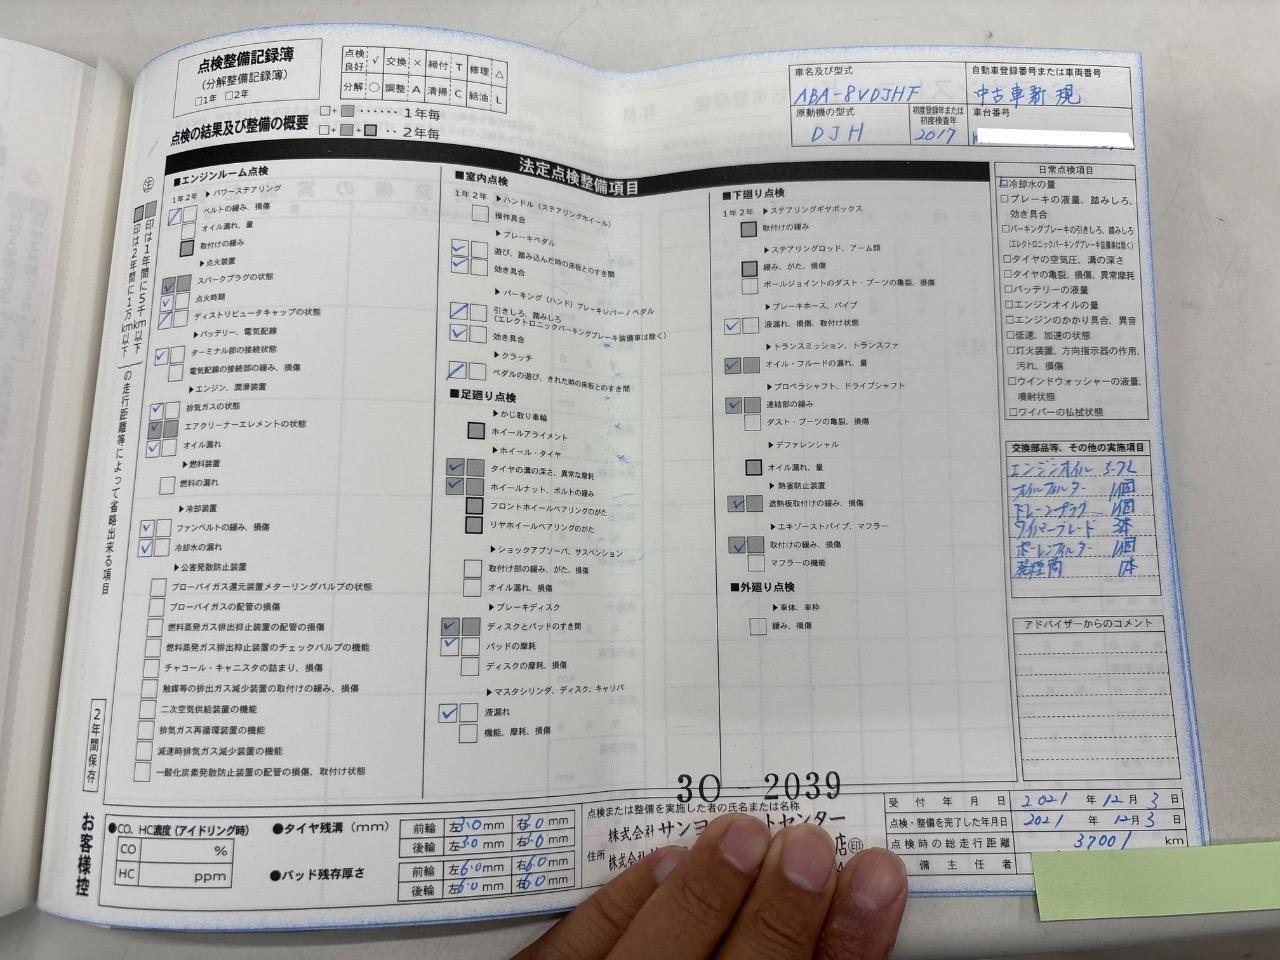 点検整備記録簿
(分解整備記録簿)
□1年 □2年
点検良好 √ 交換 × 締付 T 修理 △
分解 ○ 調整 A 清掃 C 給油 L
点検の結果及び整備の概要
□+■‥‥‥1年毎
□+■+■‥2年毎
車名及び型式
ABA-8VDJHF
自動車登録番号または車両番号
中古車新規
原動機の型式
DJH
初度登録年または初度検査年
2017
車台番号
法定点検整備項目
㊟
■■印は1年間に5千km以下
■印は2年間に1万km以下
の走行距離等によって省略出来る項目
2年間保存
お客様控
■エンジンルーム点検
1年2年
▶パワーステアリング
ベルトの緩み、損傷
オイル漏れ、量
取付けの緩み
▶点火装置
スパークプラグの状態
点火時期
ディストリビュータキャップの状態
▶バッテリー、電気配線
ターミナル部の接続状態
電気配線の接続部の緩み、損傷
▶エンジン、潤滑装置
排気ガスの状態
エアクリーナーエレメントの状態
オイル漏れ
▶燃料装置
燃料の漏れ
▶冷却装置
ファンベルトの緩み、損傷
冷却水の漏れ
▶公害発散防止装置
ブローバイガス還元装置メターリングバルブの状態
ブローバイガスの配管の損傷
燃料蒸発ガス排出抑止装置の配管の損傷
燃料蒸発ガス排出抑止装置のチェックバルブの機能
チャコール・キャニスタの詰まり、損傷
触媒等の排出ガス減少装置の取付けの緩み、損傷
二次空気供給装置の機能
排気ガス再循環装置の機能
減速時排気ガス減少装置の機能
一酸化炭素発散防止装置の配管の損傷、取付け状態
■室内点検
1年2年
▶ハンドル(ステアリングホイール)
操作具合
▶ブレーキペダル
遊び、踏み込んだ時の床板とのすき間
効き具合
▶パーキング(ハンド)ブレーキレバー/ペダル
引きしろ、踏みしろ
(エレクトロニックパーキングブレーキ装備車は除く)
効き具合
▶クラッチ
ペダルの遊び、きれた時の床板とのすき間
■足廻り点検
▶かじ取り車輪
ホイールアライメント
▶ホイール・タイヤ
タイヤの溝の深さ、異常な摩耗
ホイールナット、ボルトの緩み
フロントホイールベアリングのがた
リヤホイールベアリングのがた
▶ショックアブソーバ、サスペンション
取付け部の緩み、がた、損傷
オイル漏れ、損傷
▶ブレーキディスク
ディスクとパッドのすき間
パッドの摩耗
ディスクの摩耗、損傷
▶マスタシリンダ、ディスク、キャリパ
液漏れ
機能、摩耗、損傷
■下廻り点検
1年2年
▶ステアリングギヤボックス
取付けの緩み
▶ステアリングロッド、アーム類
緩み、がた、損傷
ボールジョイントのダスト・ブーツの亀裂、損傷
▶ブレーキホース、パイプ
液漏れ、損傷、取付け状態
▶トランスミッション、トランスファ
オイル・フルードの漏れ、量
▶プロペラシャフト、ドライブシャフト
連結部の緩み
ダスト・ブーツの亀裂、損傷
▶デファレンシャル
オイル漏れ、量
▶熱害防止装置
遮熱板取付けの緩み、損傷
▶エキゾーストパイプ、マフラー
取付けの緩み、損傷
マフラーの機能
■外廻り点検
▶車体、車枠
緩み、損傷
日常点検項目
□冷却水の量
□ブレーキの液量、踏みしろ、
効き具合
□パーキングブレーキの引きしろ、踏みしろ
(エレクトロニックパーキングブレーキ装備車は除く)
□タイヤの空気圧、溝の深さ
□タイヤの亀裂、損傷、異常摩耗
□バッテリーの液量
□エンジンオイルの量
□エンジンのかかり具合、異音
□低速、加速の状態
□灯火装置、方向指示器の作用、
汚れ、損傷
□ウインドウォッシャーの液量、
噴射状態
□ワイパーの払拭状態
交換部品等、その他の実施項目
エンジンオイル 5.7L
オイルフィルター 1個
ドレーンプラグ 1個
ワイパーブレード 3本
ポーレンフィルター 1個
発煙筒 1本
アドバイザーからのコメント
●CO、HC濃度(アイドリング時)
CO %
HC ppm
●タイヤ残溝(mm)
前輪 左3.0mm 右3.0mm
後輪 左3.0mm 右3.0mm
●パッド残存厚さ
前輪 左6.0mm 右6.0mm
後輪 左6.0mm 右6.0mm
30-2039
点検または整備を実施した者の氏名または名称
株式会社サンヨ
トセンター
住所
株式会社
店㊞
受付年月日 2021年12月3日
点検・整備を完了した年月日 2021年12月3日
点検時の総走行距離 37001km
備主任者